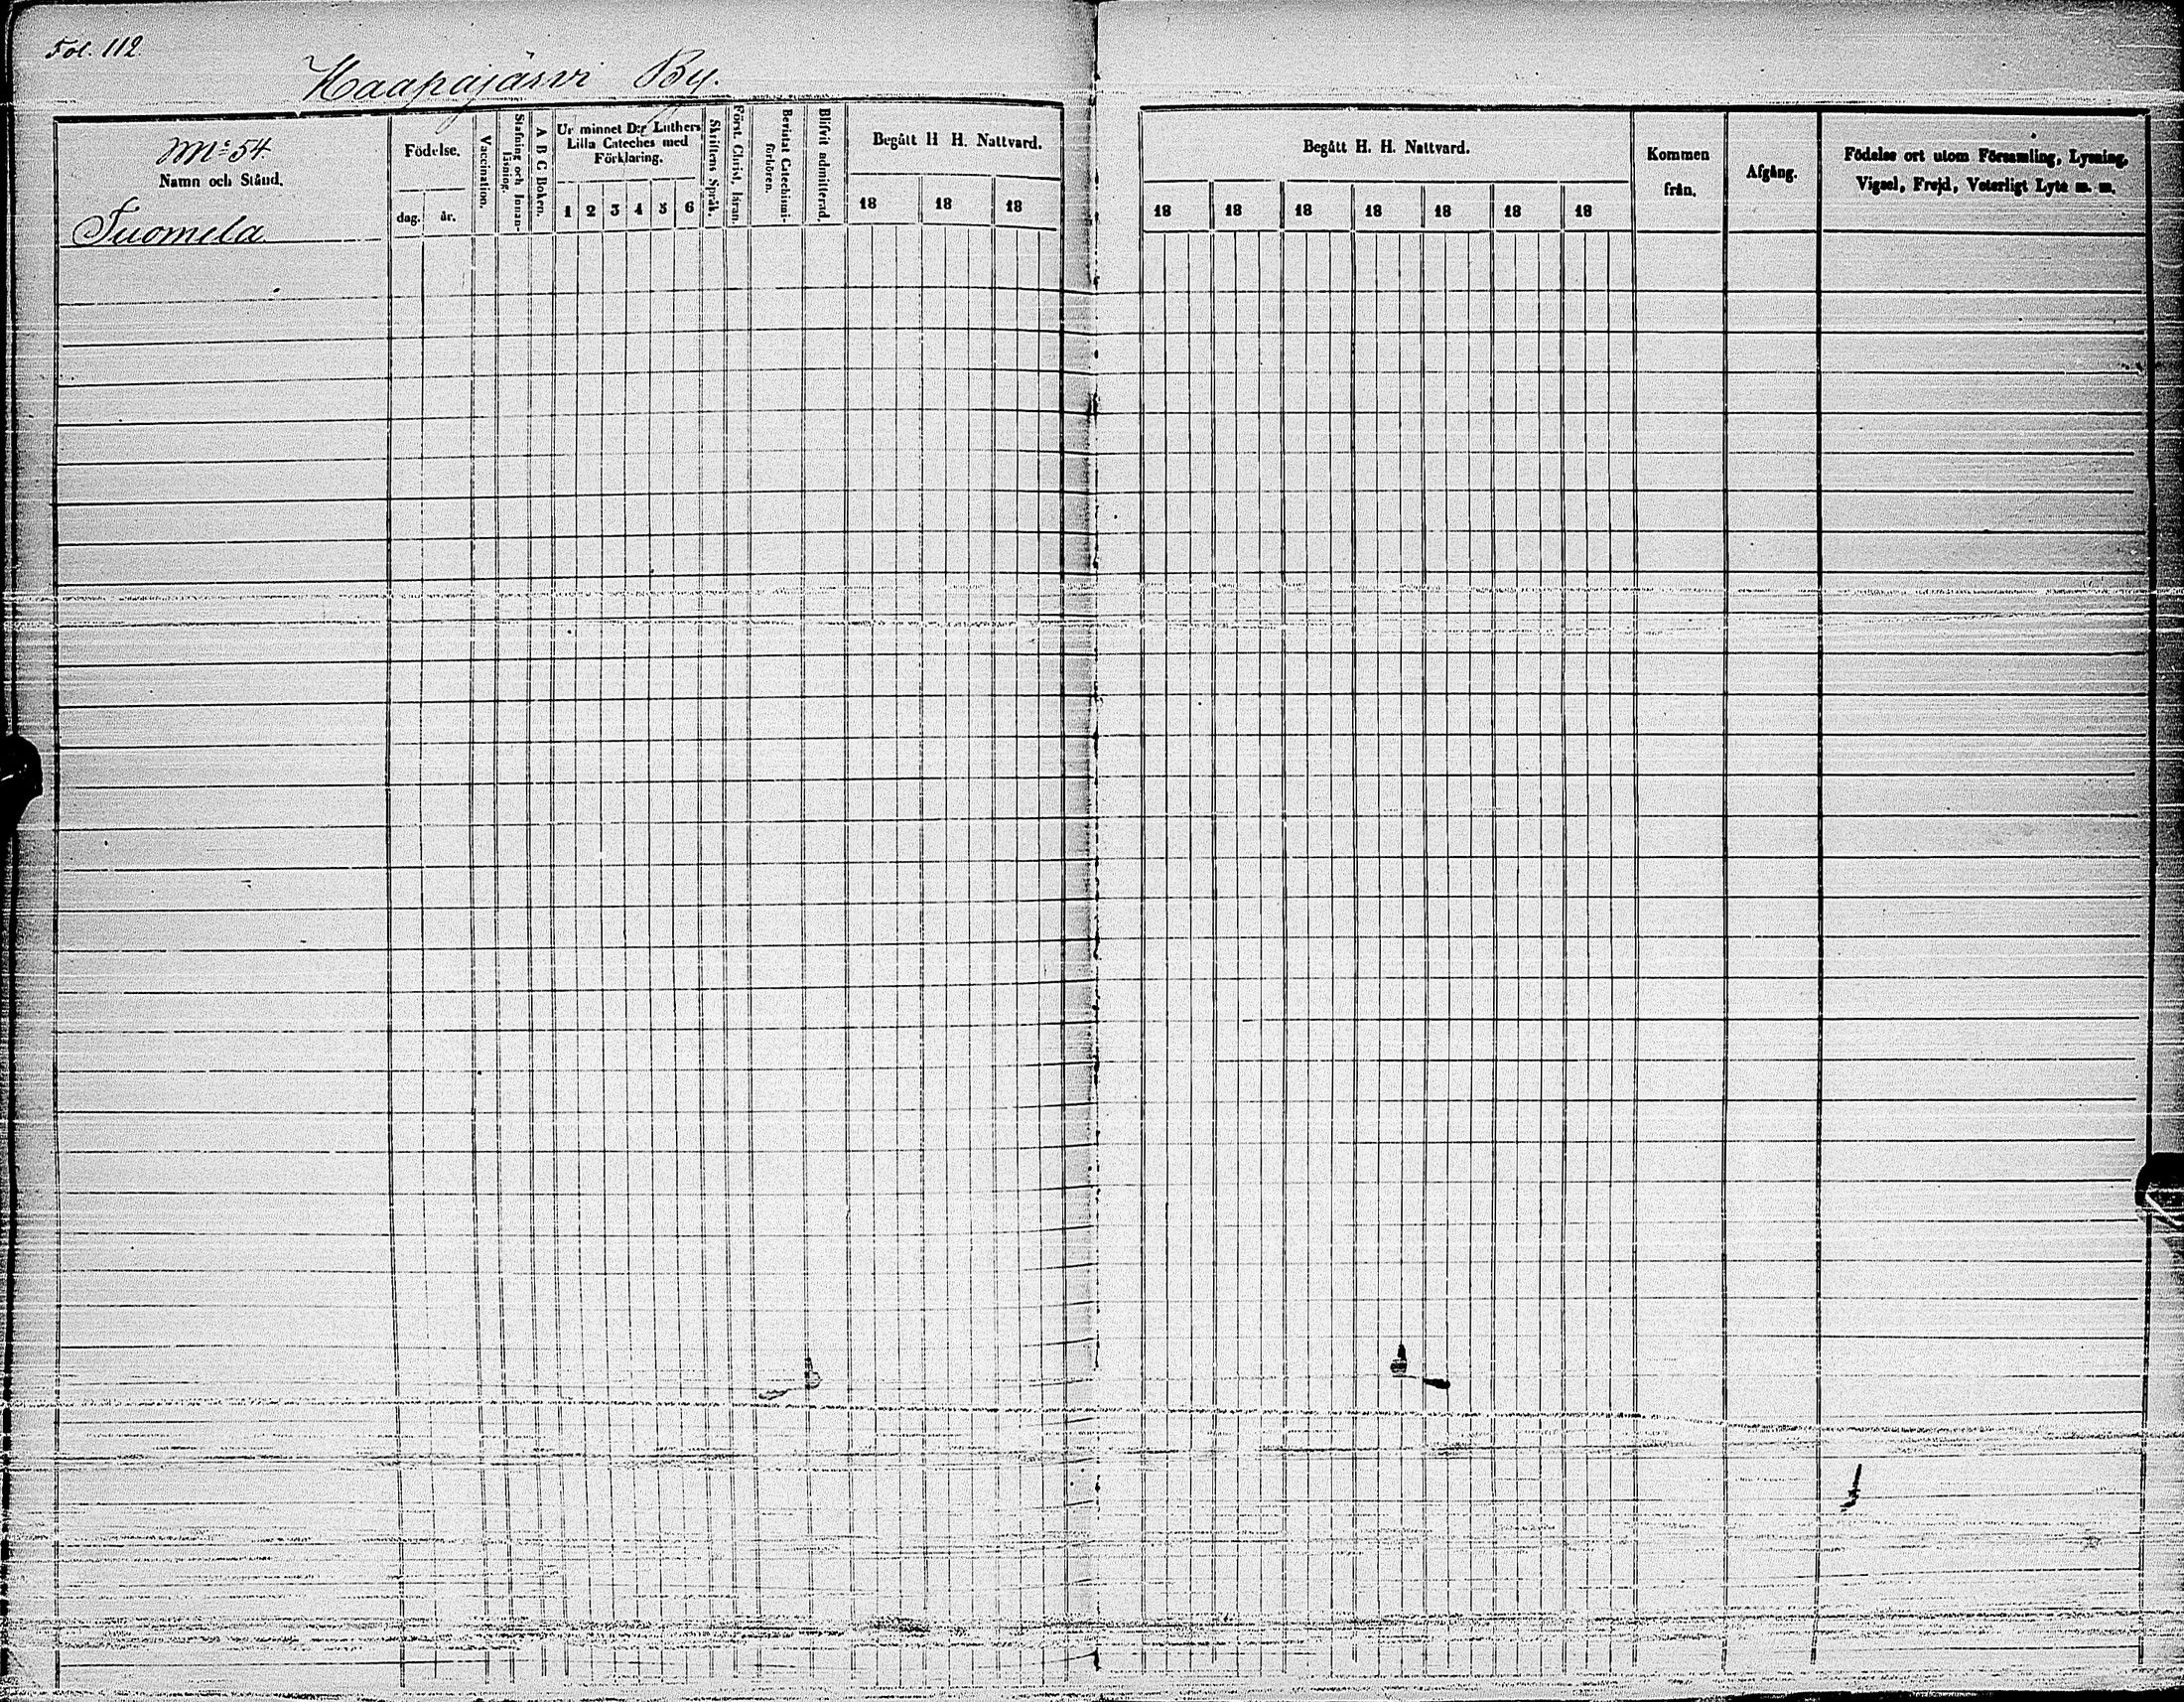 Fol. 112
Haapajärvi By.
№ 54.
Namn och Stånd.
Tuomela
Födelse.
dag. år.
Vaccination.
Stafning och Innan-
läsning.
A B C Boken.
Ur minnet D:r Luthers
Lilla Cateches med
Förklaring.
1 2 3 4 5 6
Skriftens Språk.
Först. Christ. läran.
Bevistat Catechismi-
förhören.
Blifvit admitterad.
Begått H H. Nattvard.
18 18 18
Begått H. H. Nattvard.
18 18 18 18 18 18 18
Kommen
från.
Afgång.
Födelse ort utom Församling, Lysning,
Vigsel, Frejd, Veterligt Lyte m. m.